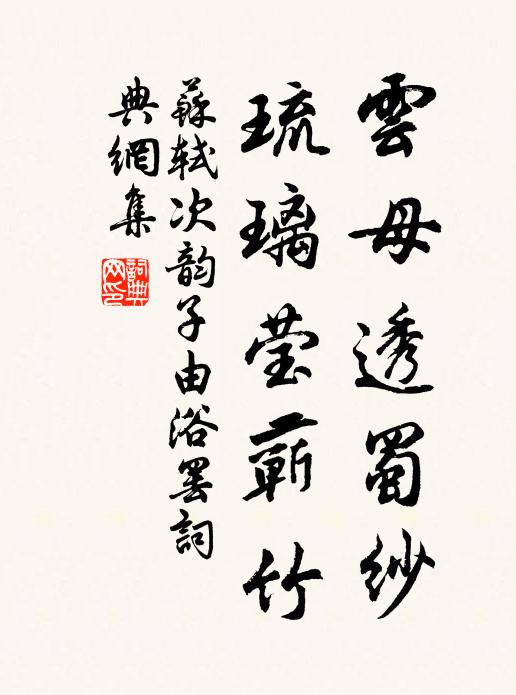 雲母透蜀紗
琉璃莹蘄竹
蘇軾次韵子由浴罢詞
典網集
詞典
网印